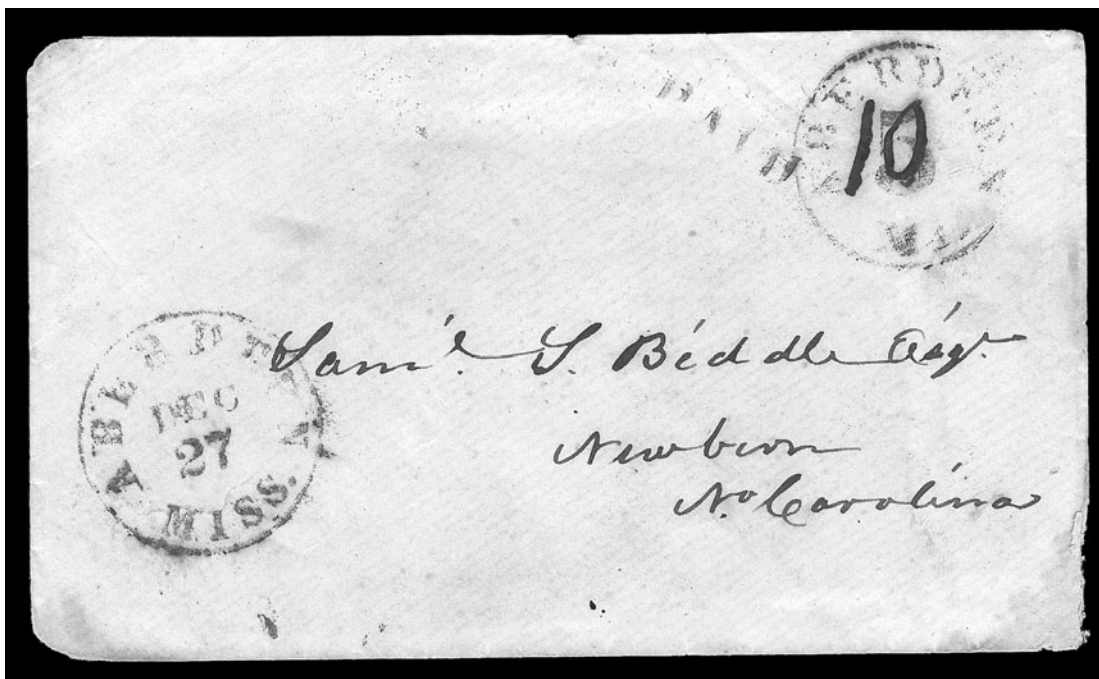 PAID
ABERDEEN
10
MISS.
ABERDEEN
DEC
27
MISS.
Saml. S. Biddle Esqr.
Newbern
No. Carolina